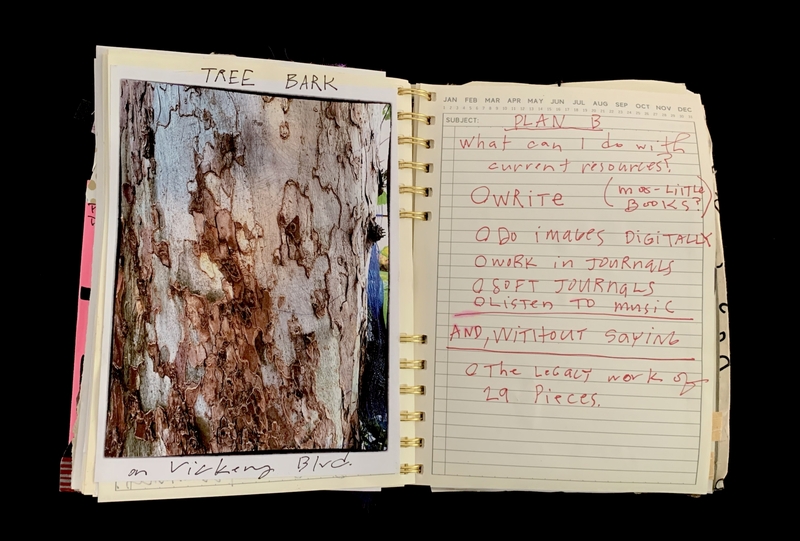 TREE BARK
on Vickery Blvd.
JAN FEB MAR APR MAY JUN JUL AUG SEP OCT NOV DEC
SUBJECT: PLAN B
What can I do with
current resources?
O WRITE (MOO-LITTLE
BOOKS?)
O DO IMAGES DIGITALLY
O WORK IN JOURNALS
O SOFT JOURNALS
O LISTEN TO MUSIC
AND, WITHOUT SAYING
O The LEGACY WORK OF
29 PIECES.